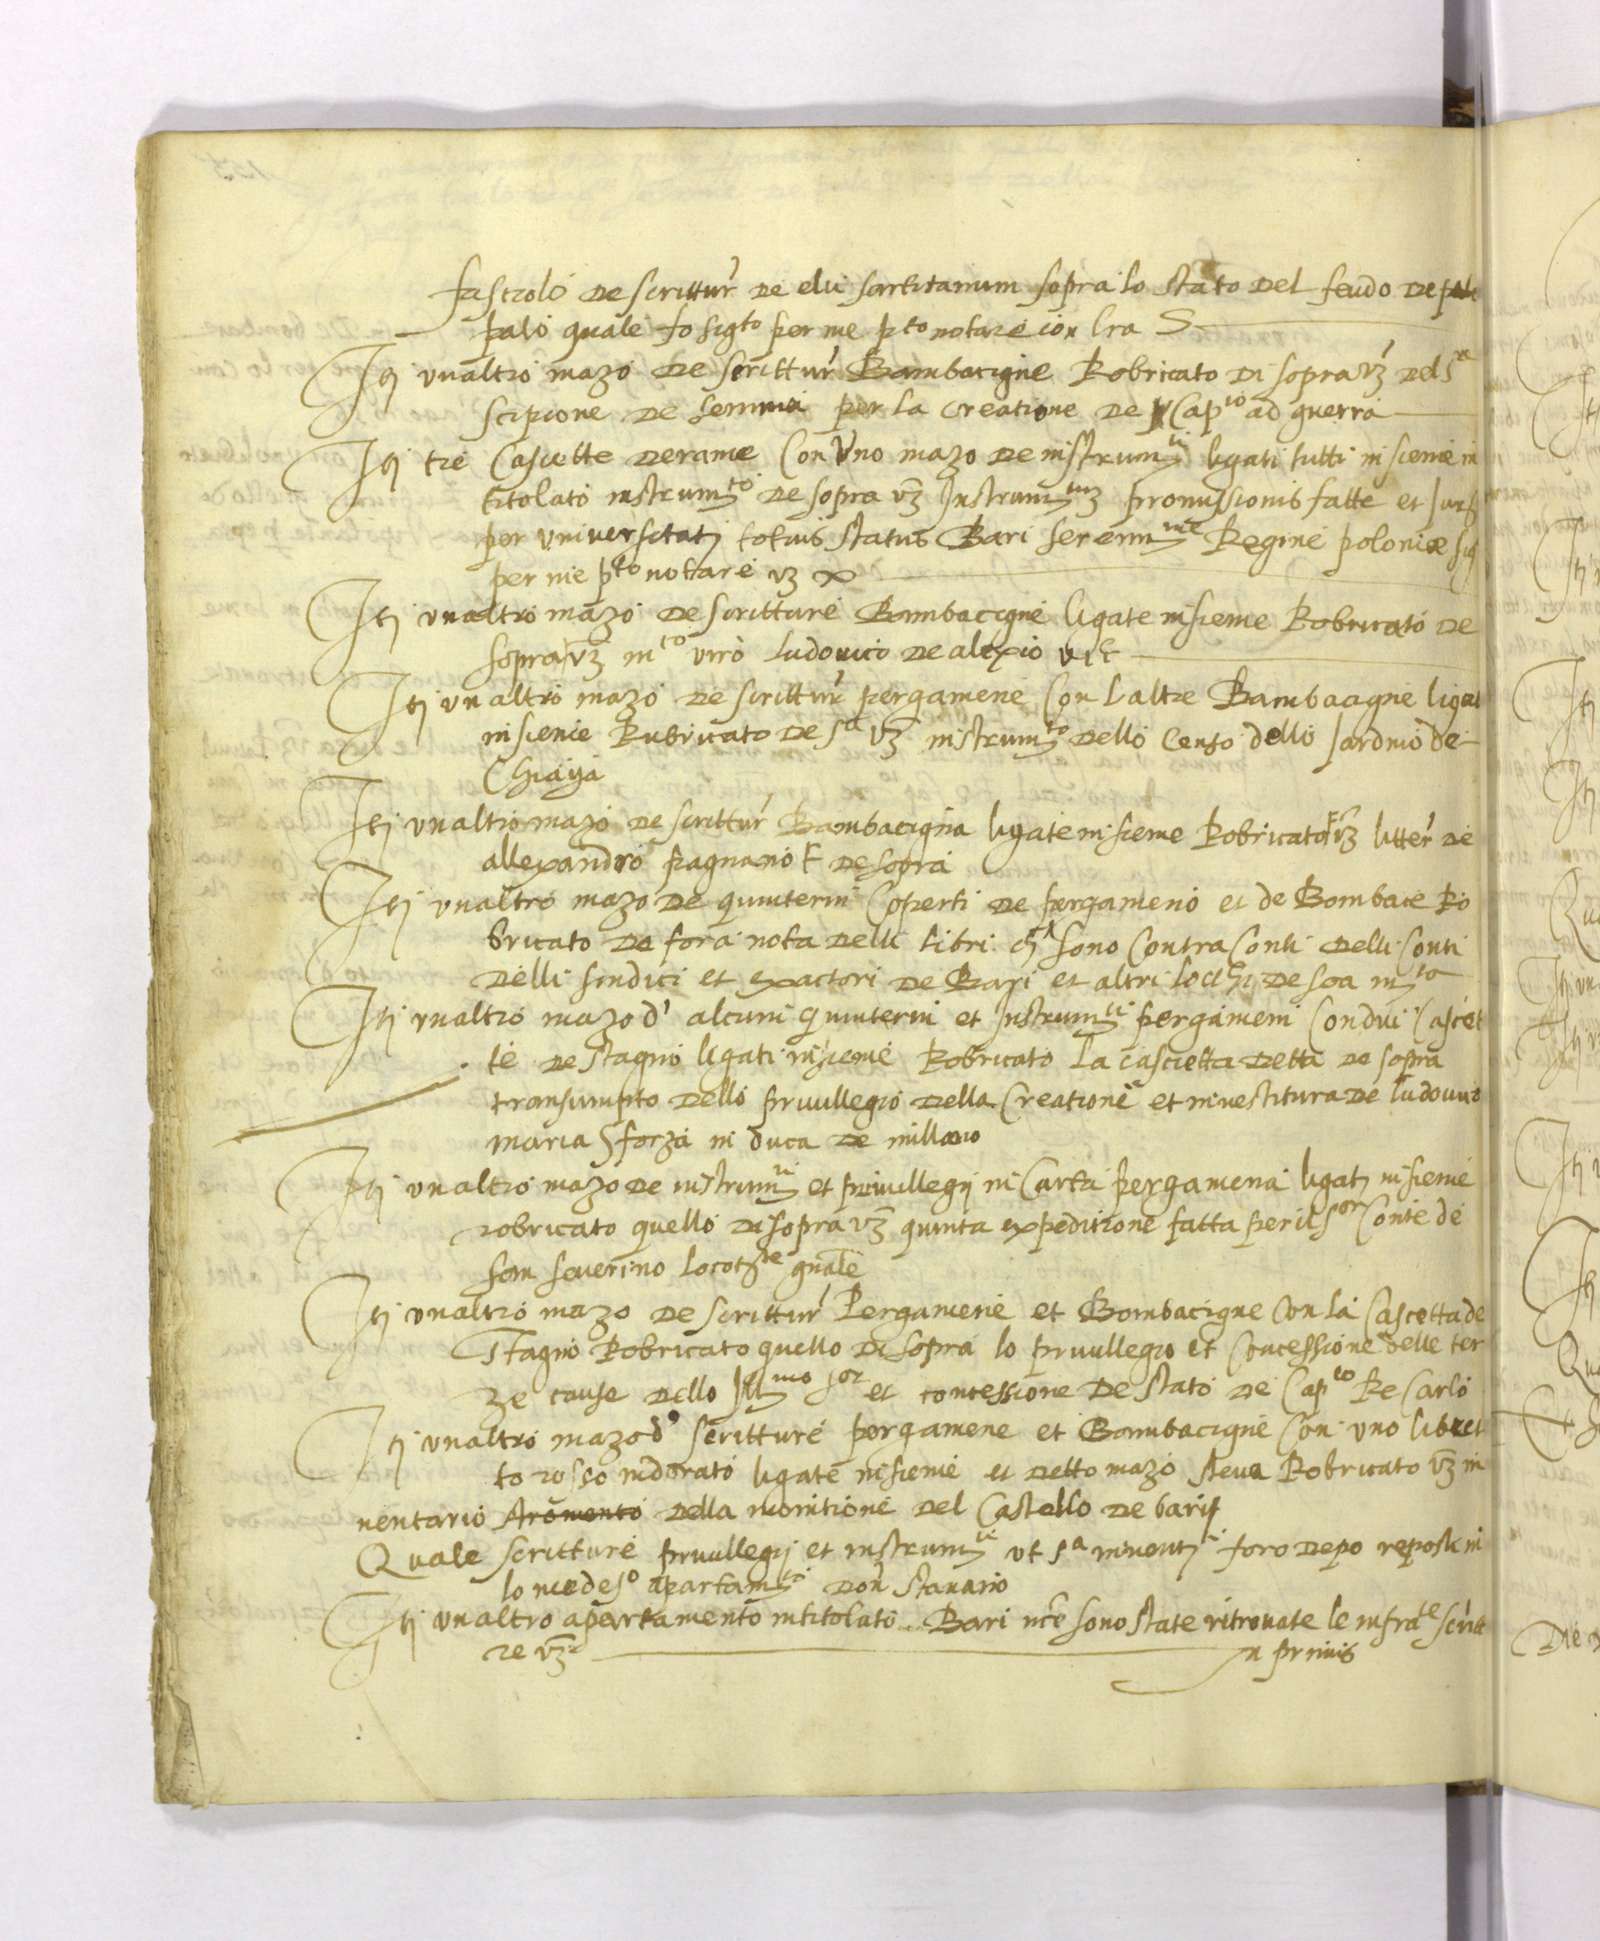 fascioli de scrittur' de elui sopra lo stato del feudo de
palo quale fo sigto per me pto notare con lra S
Itj unaltro mazo de scrittur' Bambacigne Robricato di sopra vz del Sr
Scipione de Somma per la creatione de Capto ad guerra
Itj tre Casciette derame Con uno mazo de instrumti ligati tutti insieme in
titolato instrumto de sopra vz Instrumtum promissionis fatte et
per universitatj totius status Bari serenime Regine polonie
per me pto notare vz
Itj unaltro mazo de scritture Bambacigne ligate insieme Robricato de
sopra vz mco viro ludovico de alexio
Itj unaltro mazo de scrittur' pergamene Con laltre Bambacigne ligat
insieme Rubricato de sa vz instrumto dello Censo dello Jardino de
Chiaya
Itj unaltro mazo de scrittur' Bambacigna ligate insieme Robricato vz litter' de
allexandro pagnano de sopra
Itj unaltro mazo de quinterni Coperti de pergameno et de Bombace Ro
bricato de fora nota delli libri ch sono Contra Conti delli Conti
delli sindici et exactori de Bari et altri lochi de soa mta
Itj unaltro mazo d' alcuni quinterni et Instrumti pergameni Con dui Cascet
te de stagno ligati insieme Robricato la cascietta detta de sopra
transumpto dello privillegio della Creatione et investitura de ludovico
maria Sforza in duca de millano
Itj unaltro mazo de instrumti et privillegij in Carta pergamena ligatj insieme
robricato quello di sopra vz quinta expeditione fatta per il Sor Conte de
san severino locotte gnale
Itj unaltro mazo de scrittur' Pergamene et Bombacigne Con la Cascetta de
Stagno Robricato quello di sopra lo privillegio et Concessione delle ter
ze cause dello Illmo Sor et concessione de stato de Capto Re Carlo
Itj unaltro mazo d' scritture pergamene et Bombacigne Con uno libret
to rosso indorato ligate insieme et detto mazo steva Robricato vz in
nentario della monitione del Castello de bari
Quale scritture privillegij et instrumti ut sa inventj foro depo reposti in
lo medeso apartamto donde stavano
Itj unaltro apartamento intitolato Bari nce sono state ritrovate le infrate scritt
re vz
In primis